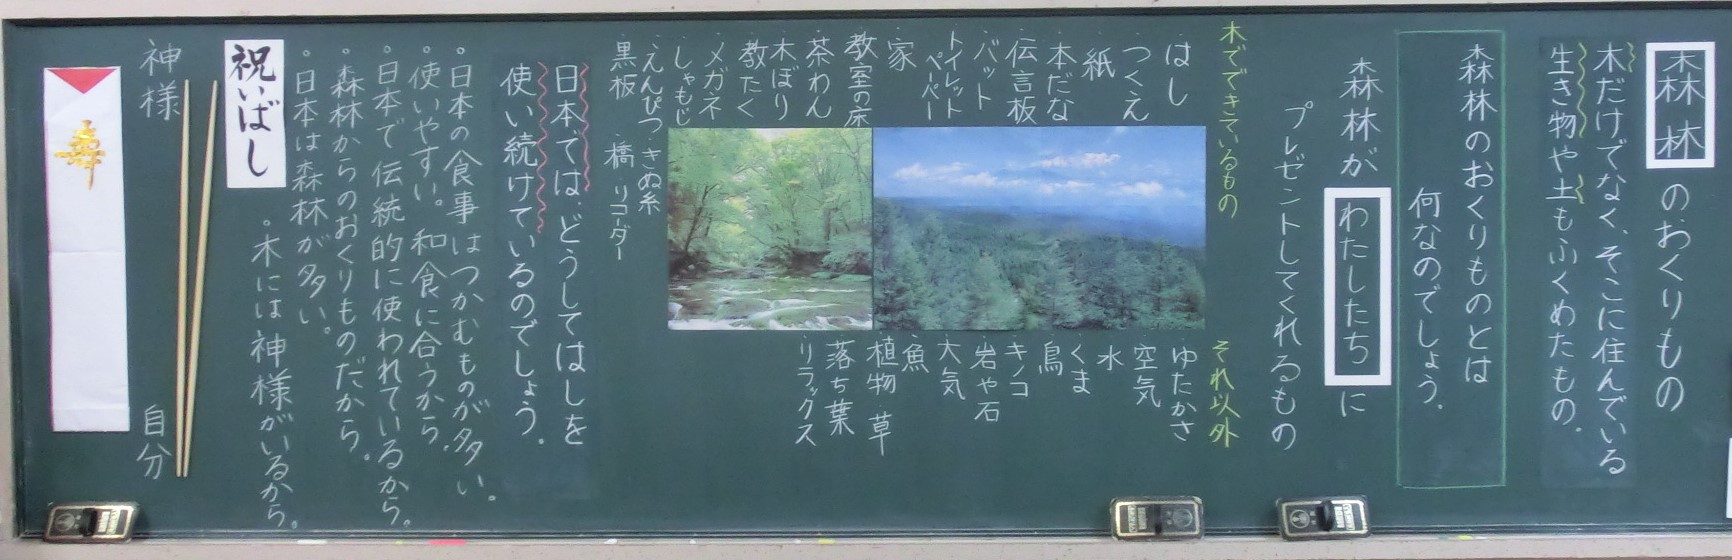 森林のおくりもの
木だけでなく、そこに住んでいる
生き物や土もふくめたもの。
森林のおくりものとは
何なのでしょう。
森林がわたしたちに
プレゼントしてくれるもの
木でできているもの
・はし
・つくえ
・紙
・本だな
・伝言板
・バット
・トイレットペーパー
・家
・教室の床
・茶わん
・木ぼり
・教たく
・メガネ
・しゃもじ
・えんぴつ
・きぬ糸
・黒板
・橋
・リコーダー
それ以外
・ゆたかさ
・空気
・水
・くま
・鳥
・キノコ
・岩や石
・大気
・魚
・植物 草
・落ち葉
・リラックス
日本では、どうしてはしを
使い続けているのでしょう。
・日本の食事はつかむものが多い。
・使いやすい。和食に合うから。
・日本で伝統的に使われているから。
・森林からのおくりものだから。
・日本は森林が多い。
・木には神様がいるから。
祝いばし
神様
自分
寿